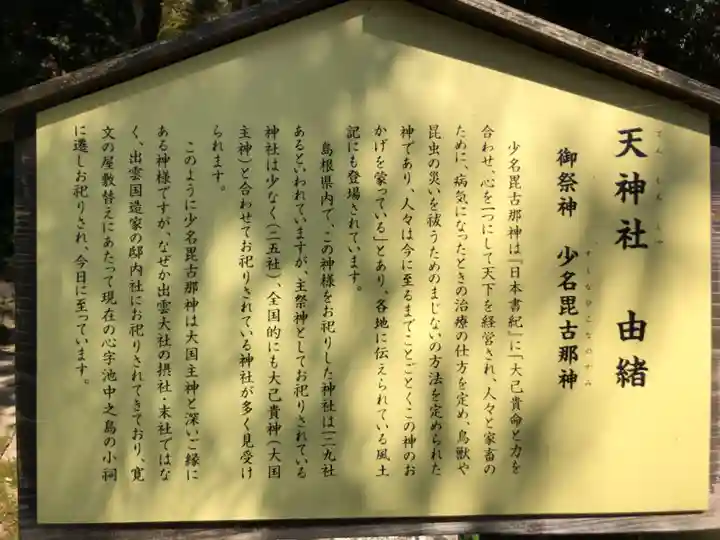 天神社　由緒
てんじんしゃ
御祭神　少名毘古那神
すくなひこなのかみ
少名毘古那神は『日本書紀』に「大己貴命と力を
合わせ、心を一つにして天下を経営され、人々と家畜の
ために、病気になったときの治療の仕方を定め、鳥獣や
昆虫の災いを祓うためのまじないの方法を定められた
神であり、人々は今に至るまでことごとくこの神のお
かげを蒙っている」とあり、各地に伝えられている風土
記にも登場されています。
島根県内で、この神様をお祀りした神社は一二九社
あるといわれていますが、主祭神としてお祀りされている
神社は少なく（二五社）、全国的にも大己貴神（大国
主神）と合わせてお祀りされている神社が多く見受け
られます。
このように少名毘古那神は大国主神と深いご縁に
ある神様ですが、なぜか出雲大社の摂社・末社ではな
く、出雲国造家の邸内社にお祀りされてきており、寛
文の屋敷替えにあたって現在の心字池中之島の小祠
に遷しお祀りされ、今日に至っています。